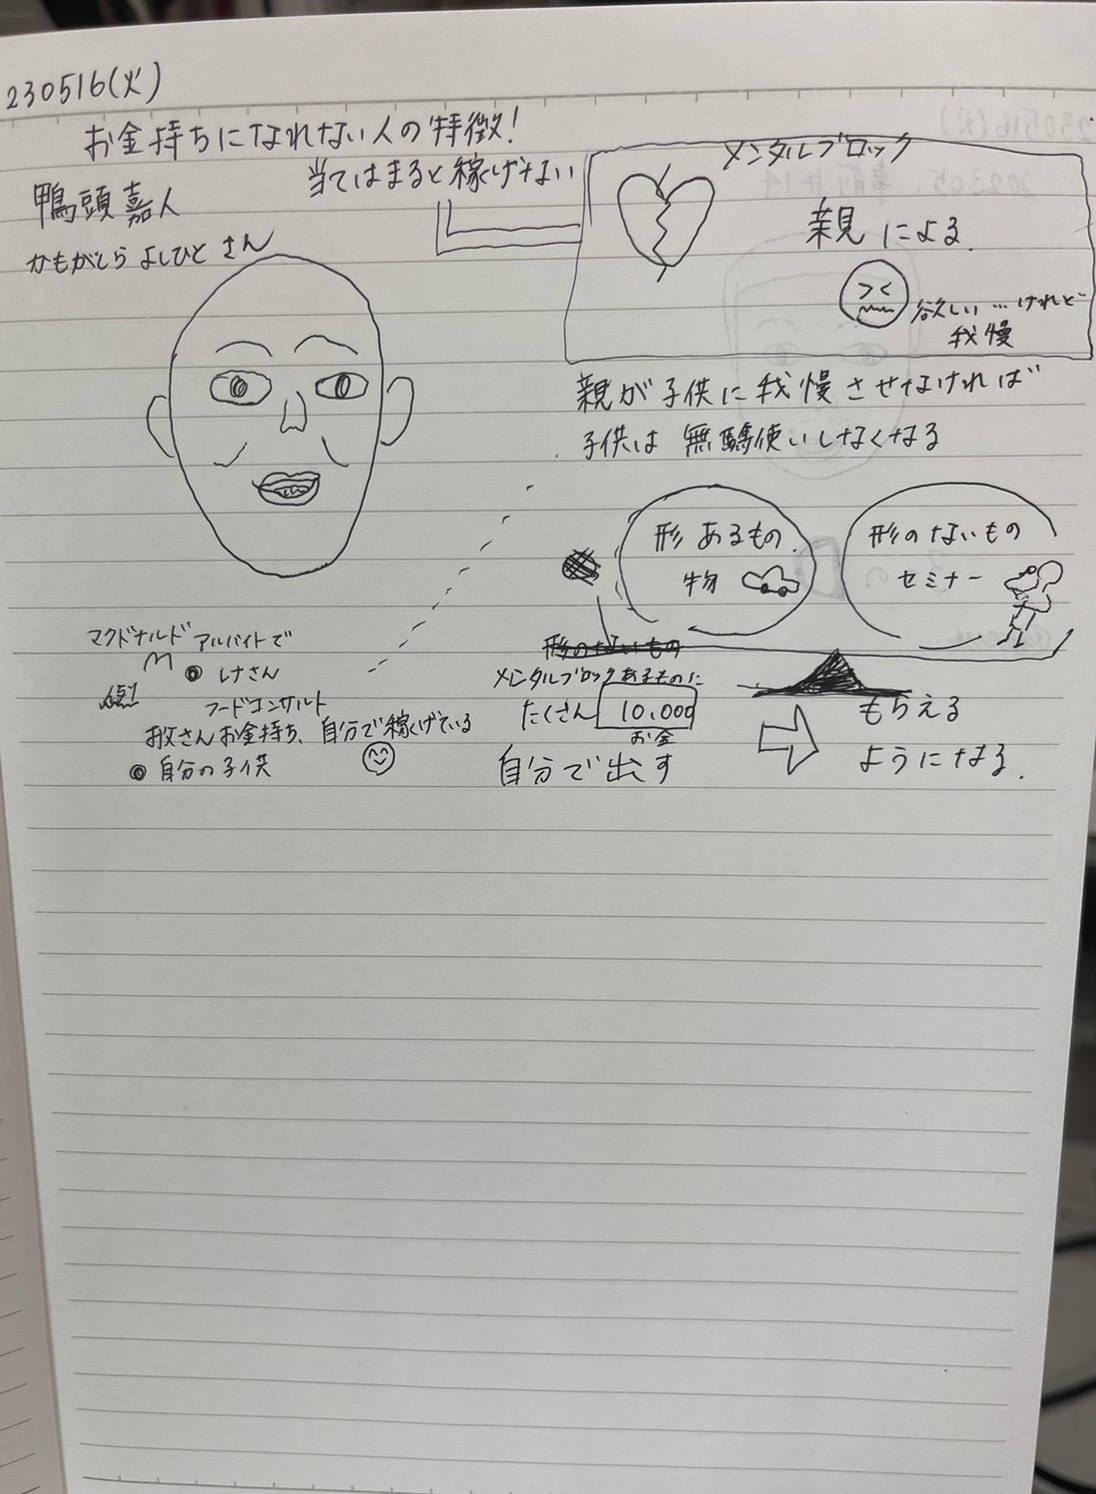 230516(火)
お金持ちになれない人の特徴!
当てはまると稼げない
鴨頭嘉人
かもがしら よしひと さん
メンタルブロック
親 による
欲しい…けれど
我慢
親が子供に我慢させなければ
子供は 無駄使いしなくなる
形 あるもの
物
形のないもの
セミナー
マクドナルド アルバイトで
M
さん
例1
フードコンサルト
お父さんお金持ち、自分で稼げている
自分の子供
形のないもの
メンタルブロックあるものに
たくさん 10,000
お金
自分で出す
もらえる
ようになる.